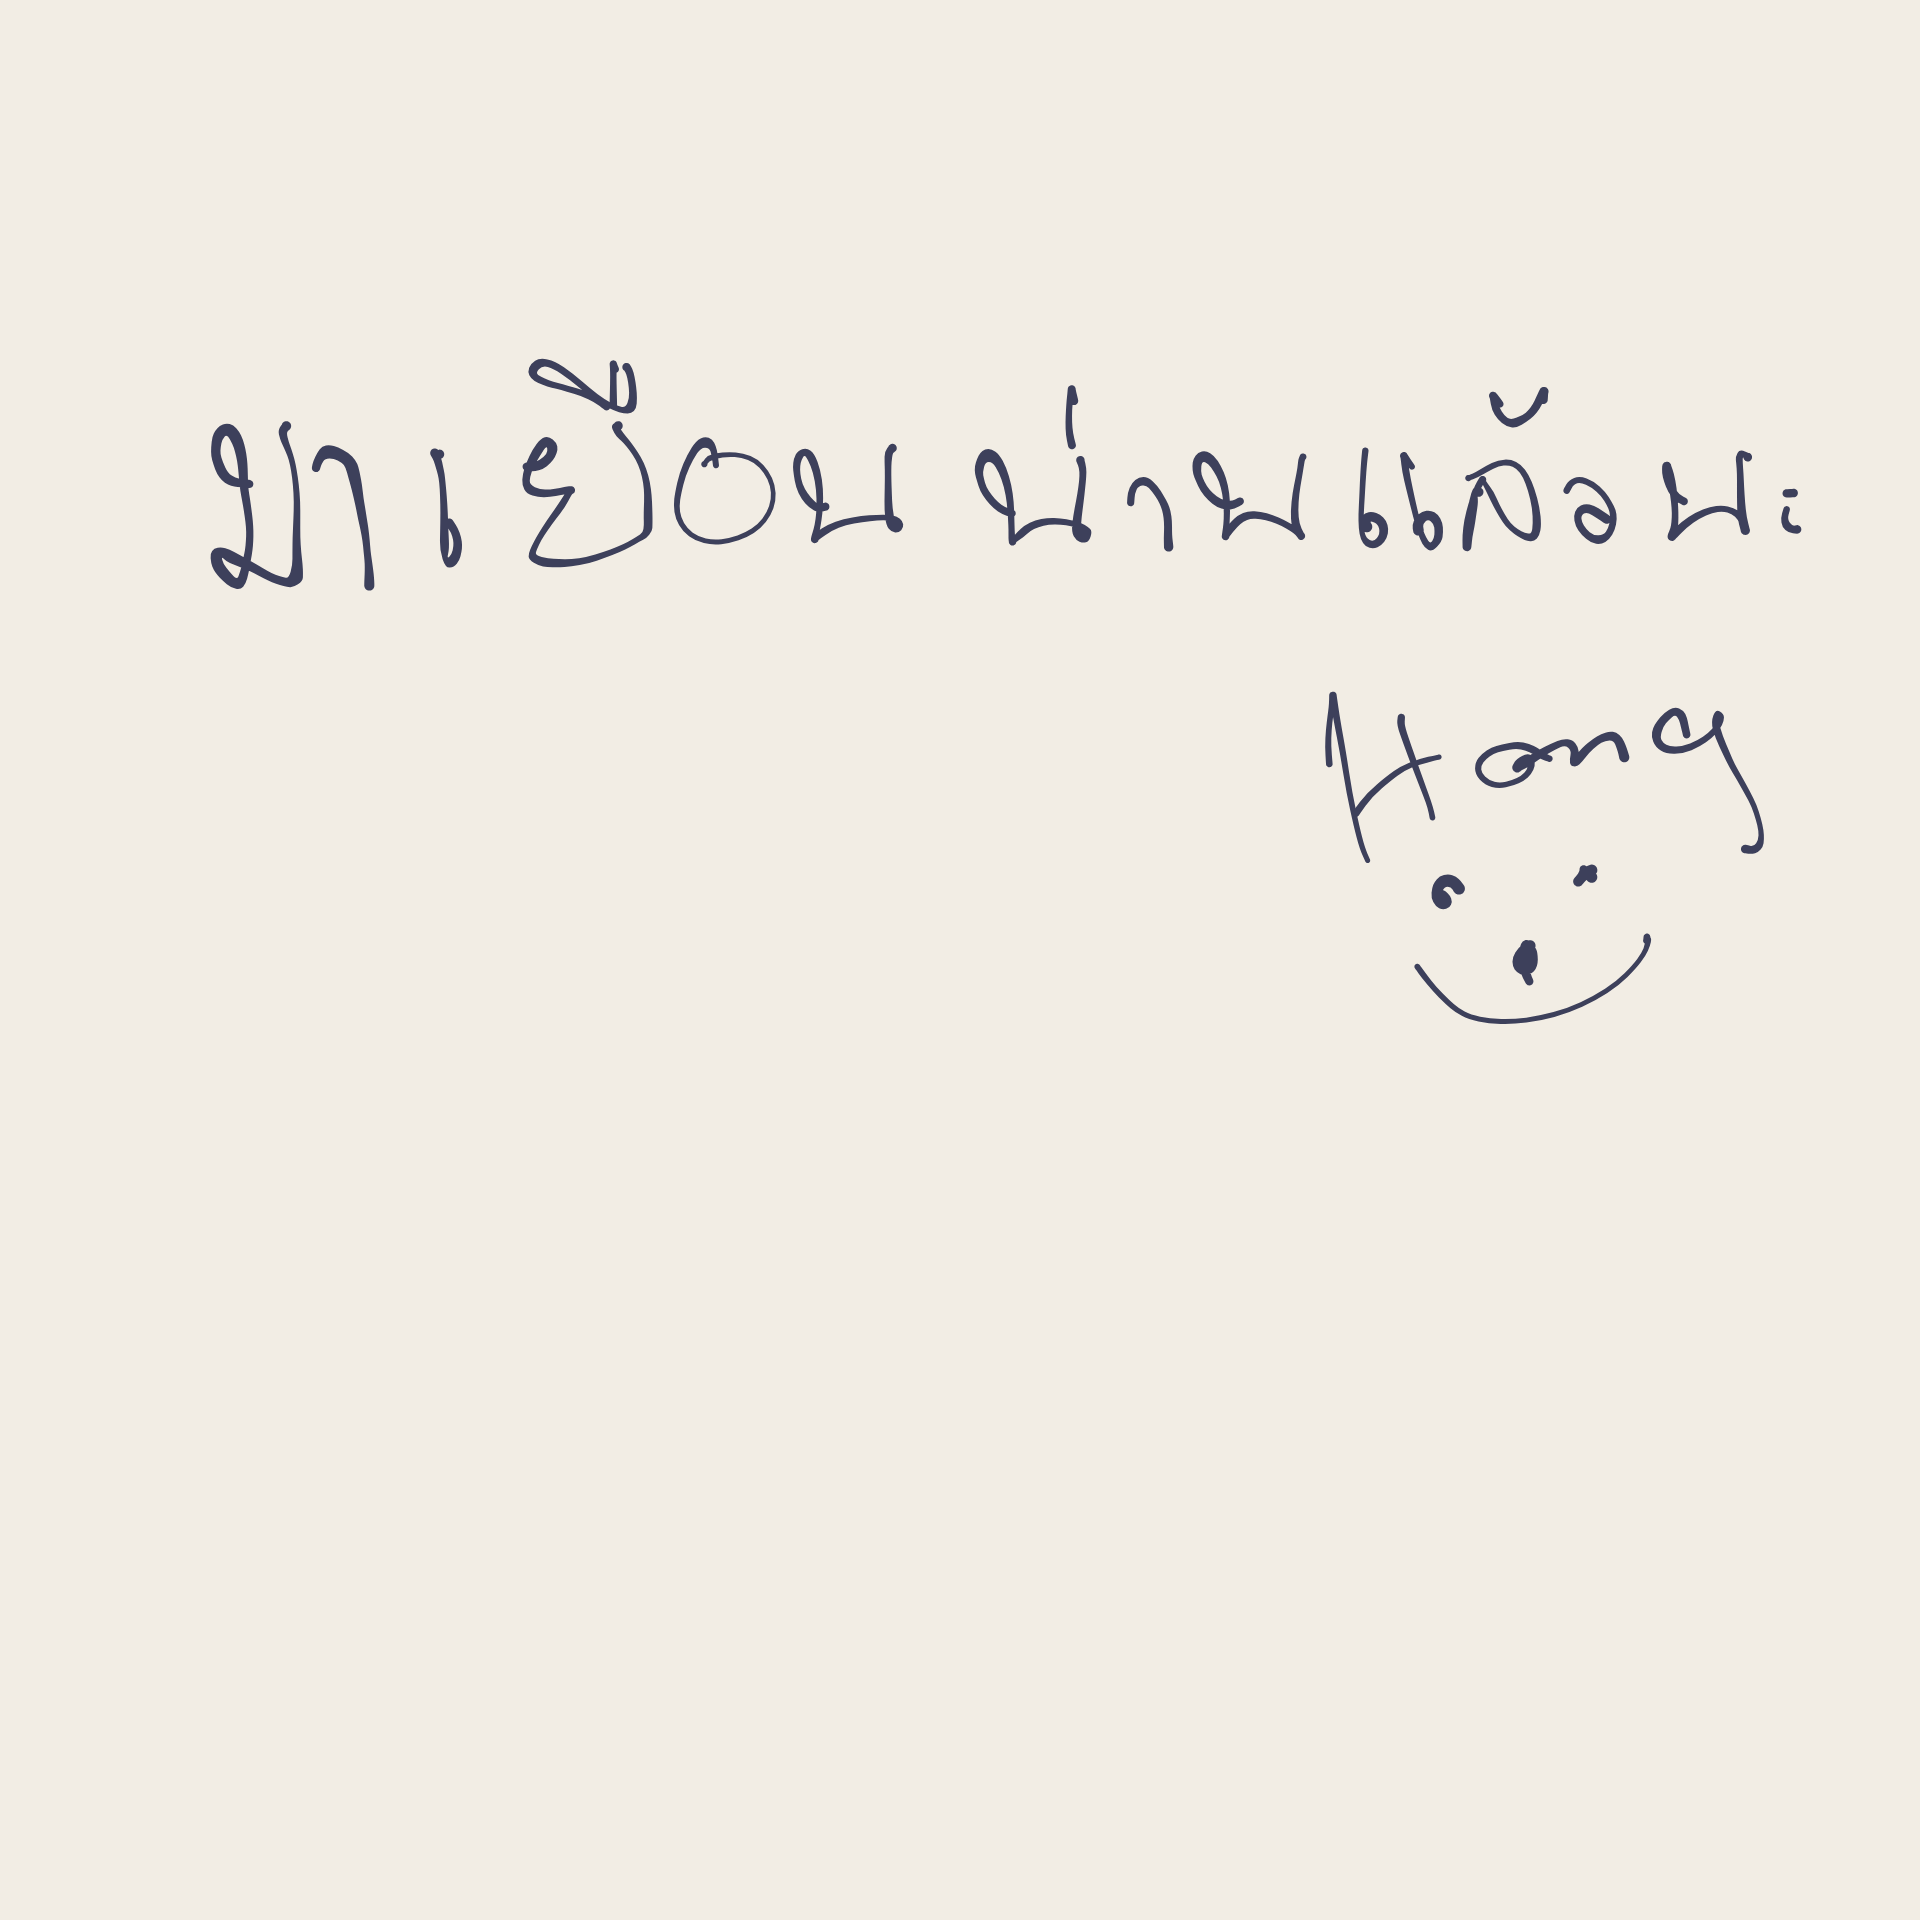 มาเยือนน่านแล้วนะ
Hong